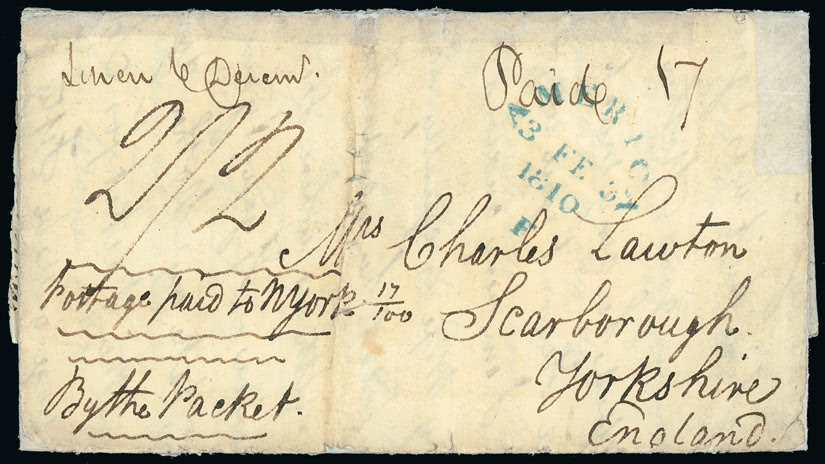 Paid 17
AMERICA
FE
1810
F
2/2
Mrs Charles Lawton
Postage paid to NYork 17/100
Scarborough.
Yorkshire
By the Packet.
England.